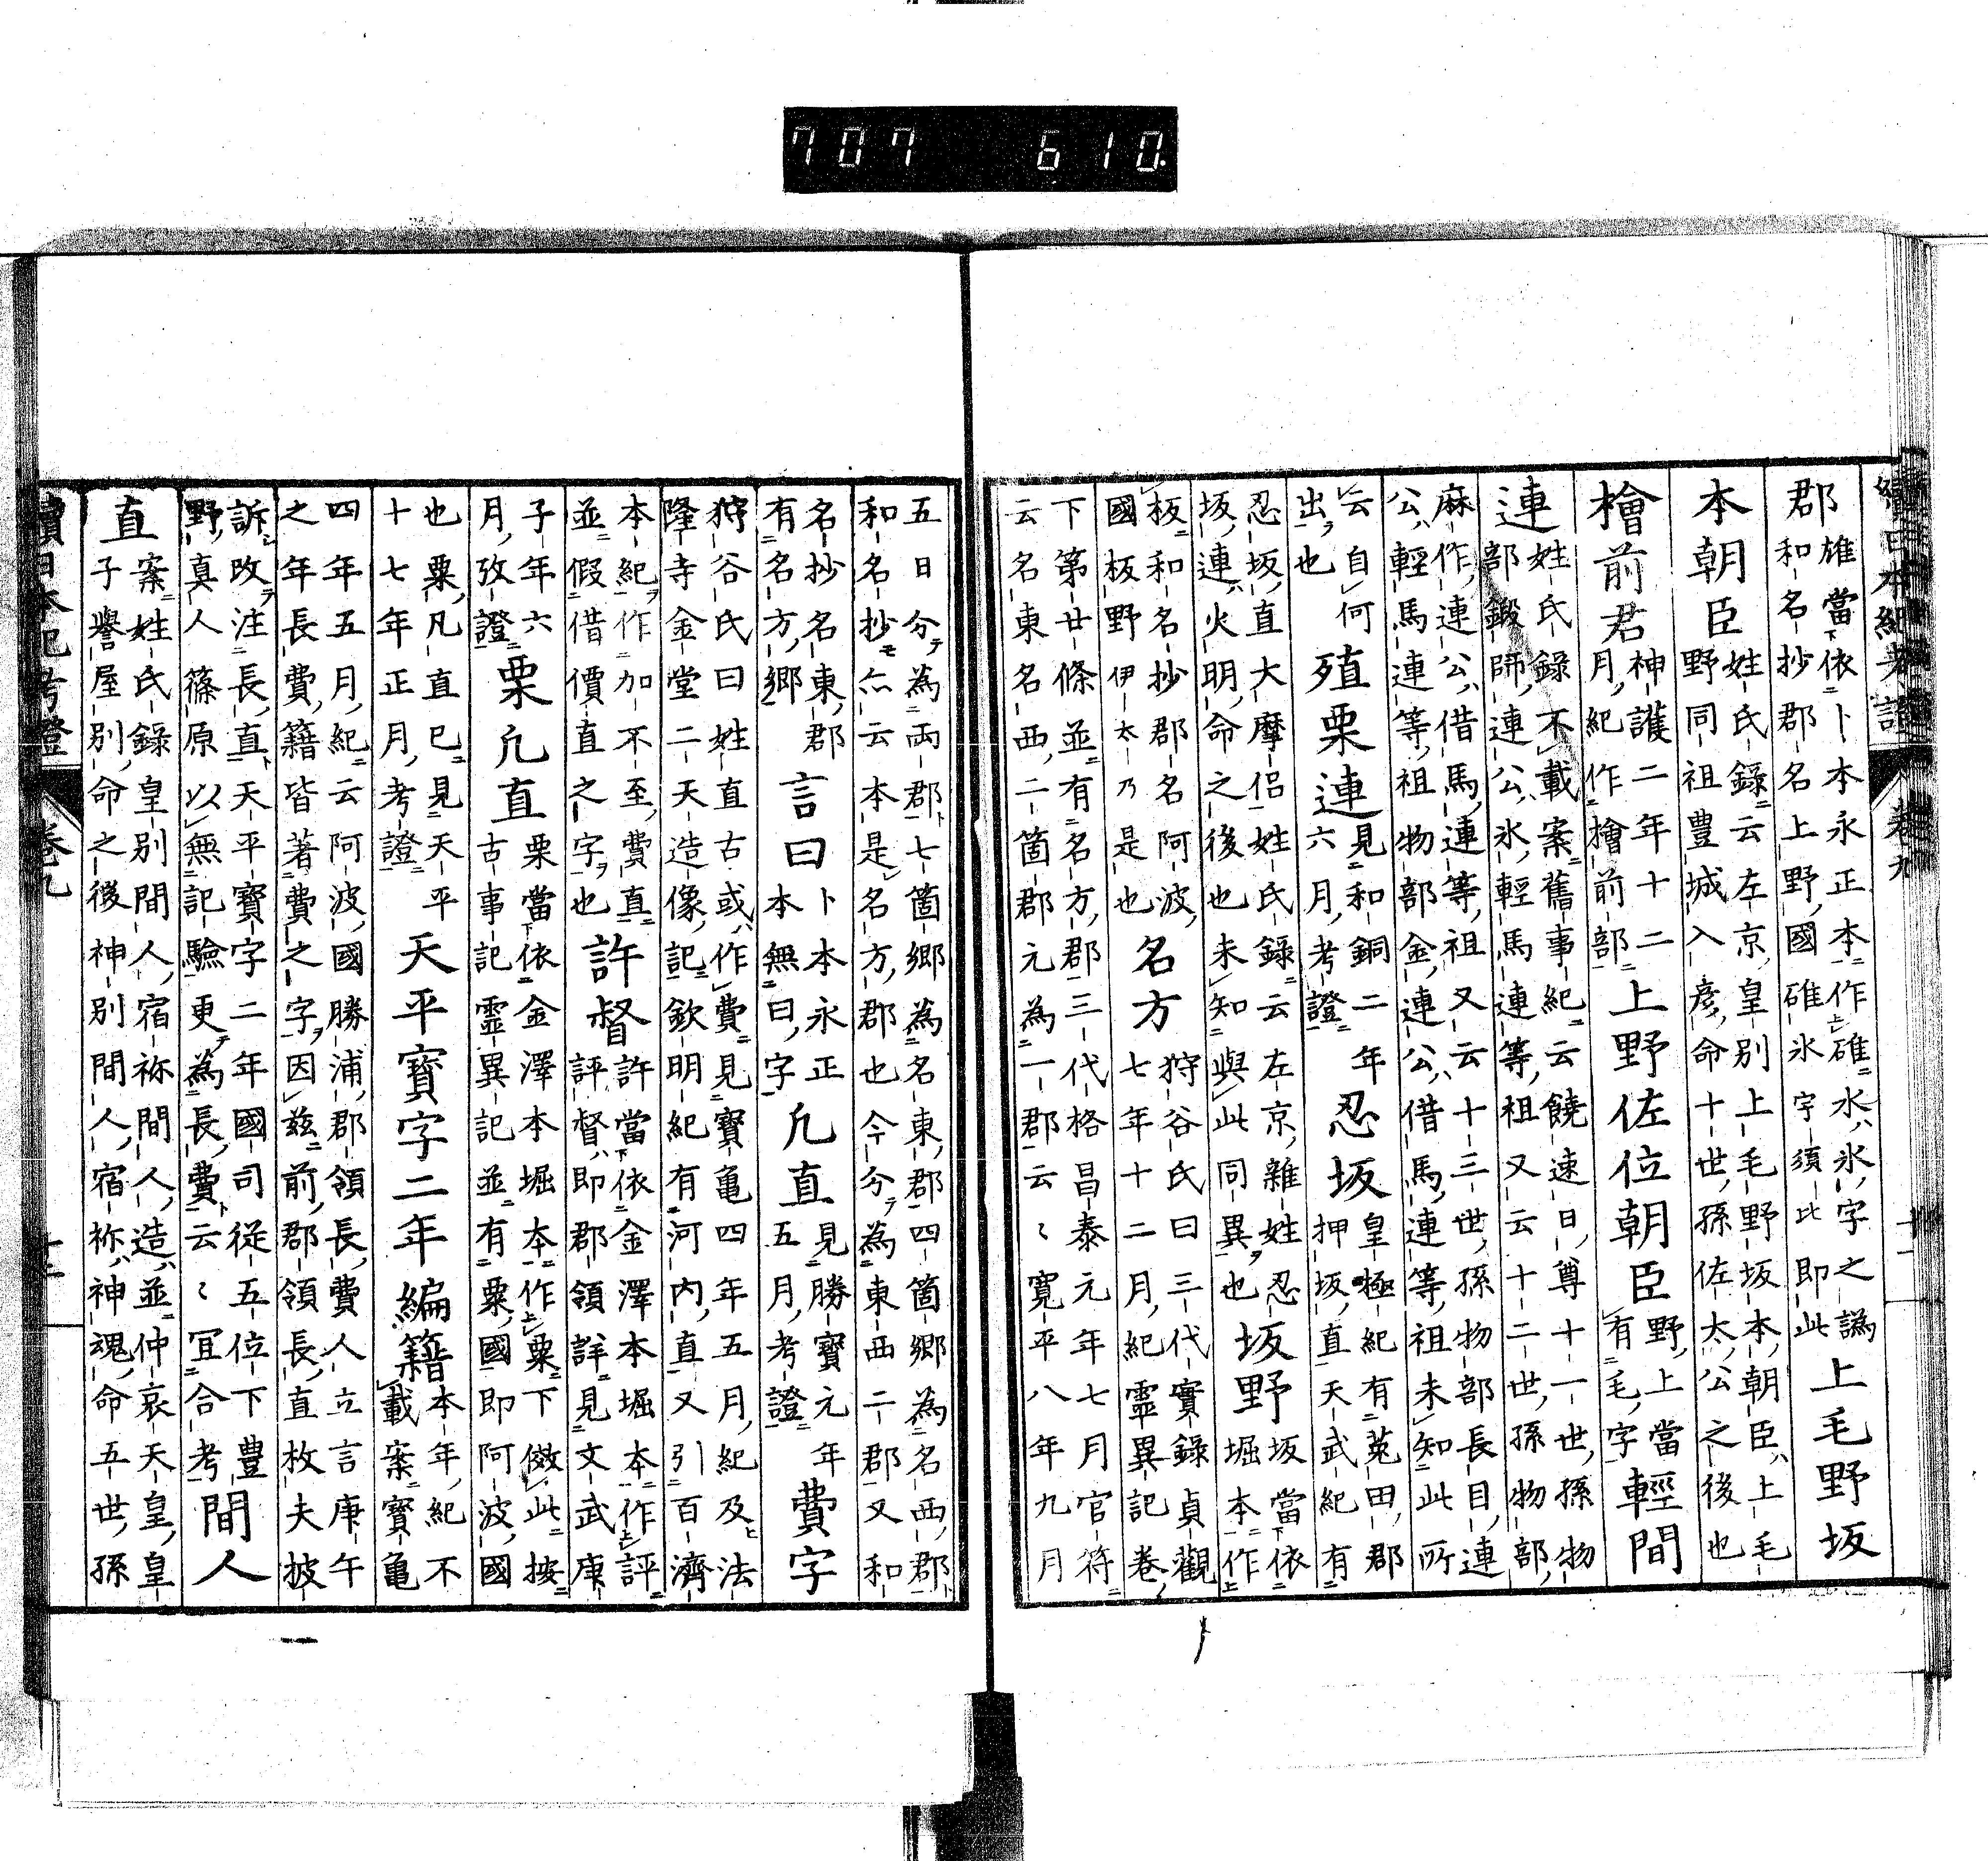 707 610
續日本紀考證 卷九 十一
郡 雄當依卜本永正本作碓水氷字之譌
和名抄郡名上野國碓氷字須比即此 上毛野坂
本朝臣 姓氏錄云左京皇別上毛野坂本朝臣上毛
野同祖豊城入彦命十世孫佐太公之後也
檜前君 神護二年十二
月紀作檜前部 上野佐位朝臣 野上當
有毛字 輕間
連 姓氏錄不載案舊事紀云饒速日尊十一世孫物
部鍛師連公氷輕馬連等祖又云十二世孫物部
麻作連公借馬連等祖又云十三世孫物部長目連
公輕馬連等祖物部金連公借馬連等祖未知此所
云自何
出也 殖栗連 見和銅二年
六月考證 忍坂 皇極紀有菟田郡
押坂直天武紀有
忍坂直大摩侶姓氏錄云左京雜姓忍
坂連火明命之後也未知與此同異也 坂野 坂當依
堀本作
板和名抄郡名阿波
國板野伊太乃是也 名方 狩谷氏曰三代實錄貞觀
七年十二月紀靈異記卷
下第廿條並有名方郡三代格昌泰元年七月官符
云名東名西二箇郡元為一郡云〻寛平八年九月
五日分為兩郡七箇郷為名東郡四箇郷為名西郡
和名抄亦云本是名方郡也今分為東西二郡又和
名抄名東郡
有名方郷 言曰 卜本永正
本無曰字 凡直 見勝寶元年
五月考證 費字
狩谷氏曰姓直古或作費見寶龜四年五月紀及法
隆寺金堂二天造像記欽明紀有河内直又引百濟
本紀作加不至費直
並假借價直之字也 許督 許當依金澤本堀本作評
評督即郡領詳見文武庚
子年六
月攷證 粟凡直 粟當依金澤本堀本作粟下傚此按
古事記靈異記並有粟國即阿波國
也粟凡直已見天平
十七年正月考證 天平寳字二年編籍 本年紀不
載案寳龜
四年五月紀云阿波國勝浦郡領長費人立言庚午
之年長費籍皆著費之字因茲前郡領長直枚夫披
訴改注長直天平寶字二年國司從五位下豊
野真人篠原以無記驗更為長費云〻冝合考 間人
直 案姓氏錄皇別間人宿祢間人造並仲哀天皇皇
子譽屋別命之後神別間人宿祢神魂命五世孫
續日本紀考證 卷九 十二